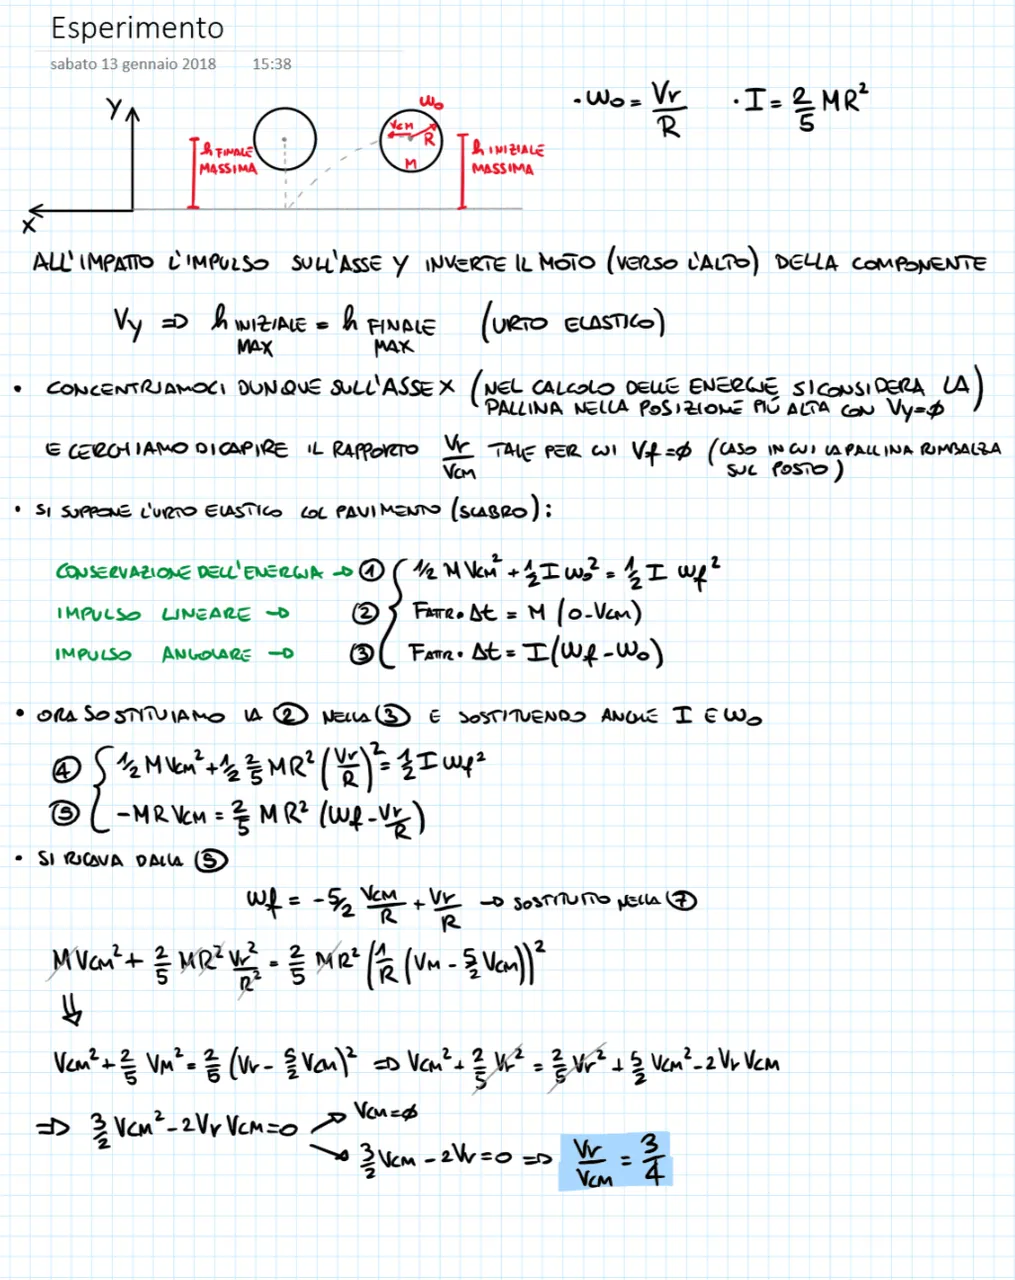 Esperimento
sabato 13 gennaio 2018 15:38
Y
X
h FINALE
MASSIMA
ω₀
VCM
R
M
h INIZIALE
MASSIMA
·ω₀ = Vr/R ·I = 2/5 MR²
ALL'IMPATTO L'IMPULSO SULL'ASSE Y INVERTE IL MOTO (VERSO L'ALTO) DELLA COMPONENTE
Vy ⇒ h INIZIALE MAX = h FINALE MAX (URTO ELASTICO)
• CONCENTRIAMOCI DUNQUE SULL'ASSE X (NEL CALCOLO DELLE ENERGIE SI CONSIDERA LA
PALLINA NELLA POSIZIONE PIÚ ALTA CON Vy=ϕ)
E CERCHIAMO DI CAPIRE IL RAPPORTO Vr/VCM TALE PER CUI Vf=ϕ (CASO IN CUI LA PALLINA RIMBALZA
SUL POSTO)
• SI SUPPONE L'URTO ELASTICO COL PAVIMENTO (SCABRO):
CONSERVAZIONE DELL'ENERGIA → ① { 1/2 M VCM² + 1/2 I ω₀² = 1/2 I ωf²
IMPULSO LINEARE → ② FATTR. Δt = M (0-VCM)
IMPULSO ANGOLARE → ③ FATTR. Δt = I(ωf-ω₀)
• ORA SOSTITUIAMO LA ② NELLA ③ E SOSTITUENDO ANCHE I E ω₀
④ { 1/2 M VCM² + 1/2 2/5 MR² (Vr/R)² = 1/2 I ωf²
⑤ -MR VCM = 2/5 MR² (ωf - Vr/R)
• SI RICAVA DALLA ⑤
ωf = -5/2 VCM/R + Vr/R → SOSTITUITO NELLA ⑦
MVCM² + 2/5 MR² Vr²/R² = 2/5 MR² (1/R (VM - 5/2 VCM))²
⇓
VCM² + 2/5 VM² = 2/5 (Vr - 5/2 VCM)² ⇒ VCM² + 2/5 Vr² = 2/5 Vr² + 5/2 VCM² - 2Vr VCM
⇒ 3/2 VCM² - 2Vr VCM = 0 → VCM = ϕ
→ 3/2 VCM - 2Vr = 0 ⇒ Vr/VCM = 3/4